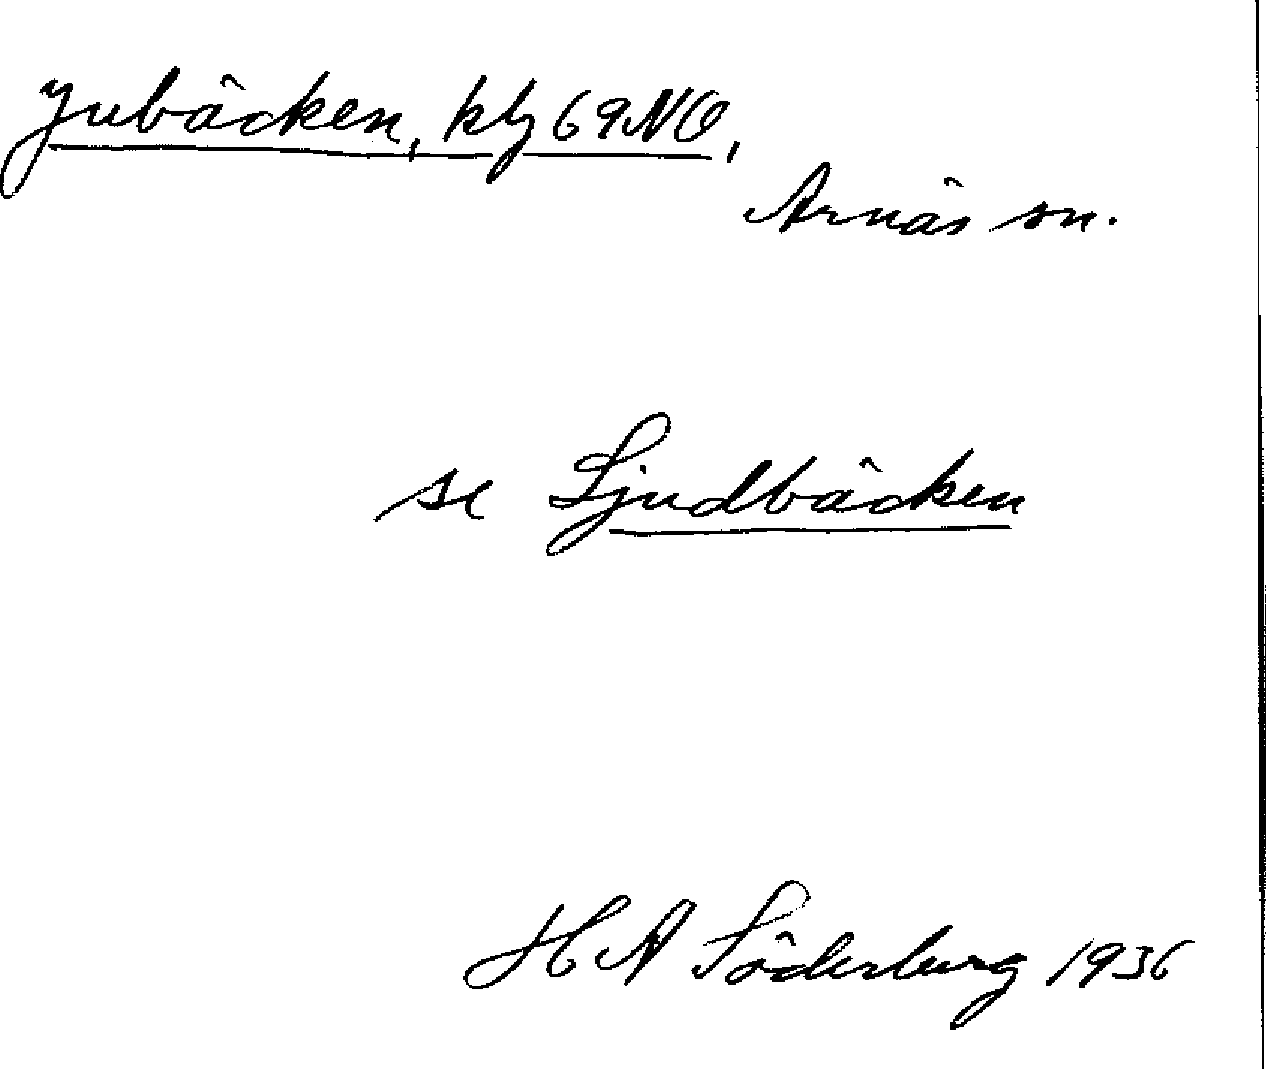 Jubäcken, kbl 69NO,
Arnäs sn.
se Ljudbäcken
H A Söderberg 1936